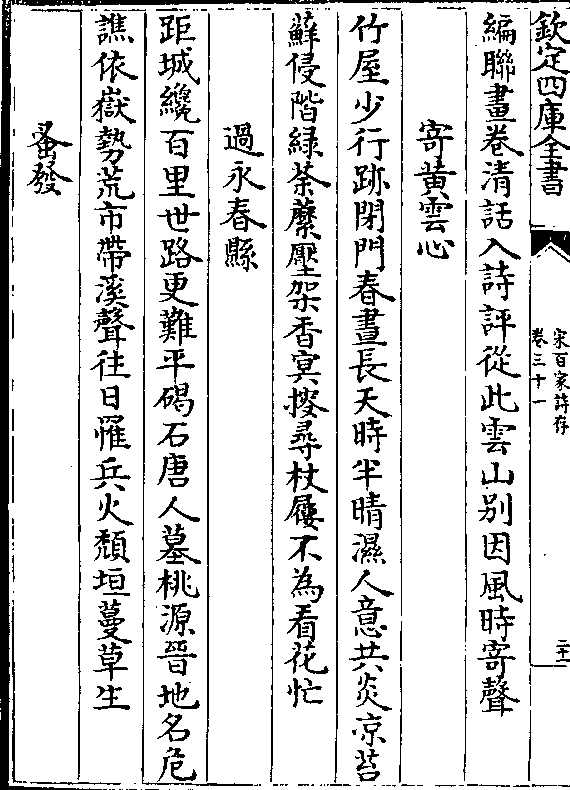 欽定四庫全書
宋百家詩存
卷三十一
二十二
編聯畫卷清話入詩評從此雲山别因風時寄聲
寄黄雲心
竹屋少行跡閉門春晝長天時半晴濕人意共炎凉苔
蘚侵階緑荼蘼壓架香冥搜尋杖屨不為看花忙
過永春縣
距城纔百里世路更難平碣石唐人墓桃源晉地名危
譙依嶽勢荒市帶溪聲往日罹兵火頽垣蔓草生
蚤發